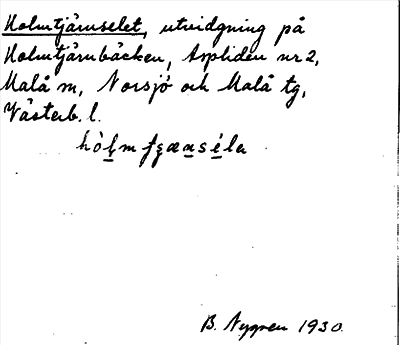 Holmtjärnselet, utvidgning på
Holmtjärnbäcken, Aspliden nr 2,
Malå m, Norsjö och Malå tg,
Västerb. l.
hòl̲mfʂæn̲sé̲la
B. Nygren 1930.